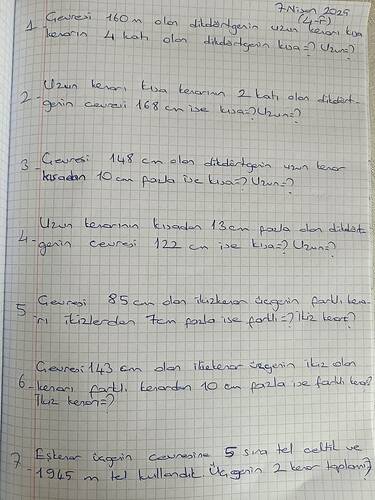 7 Nisan 2025
(4-F)
1 Çevresi 160 m olan dikdörtgenin uzun kenarı kısa
kenarın 4 katı olan dikdörtgenin kısa=? Uzun=?
Uzun kenarı kısa kenarının 2 katı olan dikdört-
2- genin çevresi 168 cm ise kısa=? Uzun=?
3 Çevresi 148 cm olan dikdörtgenin uzun kenar
kısadan 10 cm fazla ise kısa=? Uzun=?
Uzun kenarının kısadan 13 cm fazla olan dikdört-
4- genin çevresi 122 cm ise kısa=? Uzun=?
Çevresi 85 cm olan ikizkenar üçgenin farklı kena-
5 rı ikizlerden 7cm fazla ise farklı=? İkiz kenar?
Çevresi 143 cm olan ikizkenar üçgenin ikiz olan
6- kenarı farklı kenardan 10 cm fazla ise farklı ken?
İkiz kenar=?
7- Eşkenar üçgenin çevresine 5 sıra tel çektik ve
1945 m tel kullandık. Üçgenin 2 kenar toplamı?